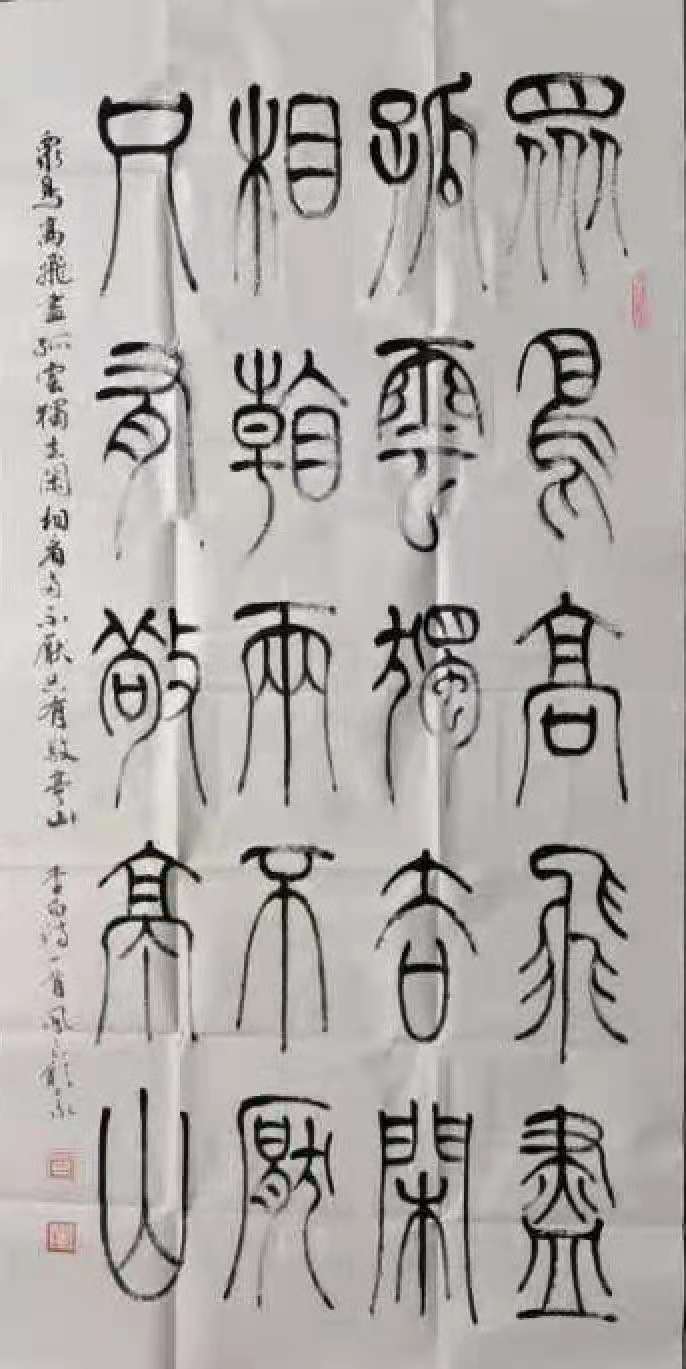 眾鳥高飛盡
孤雲獨去閑
相看兩不厭
只有敬亭山
眾鳥高飛盡孤雲獨去閑相看兩不厭只有敬亭山 李白詩一首